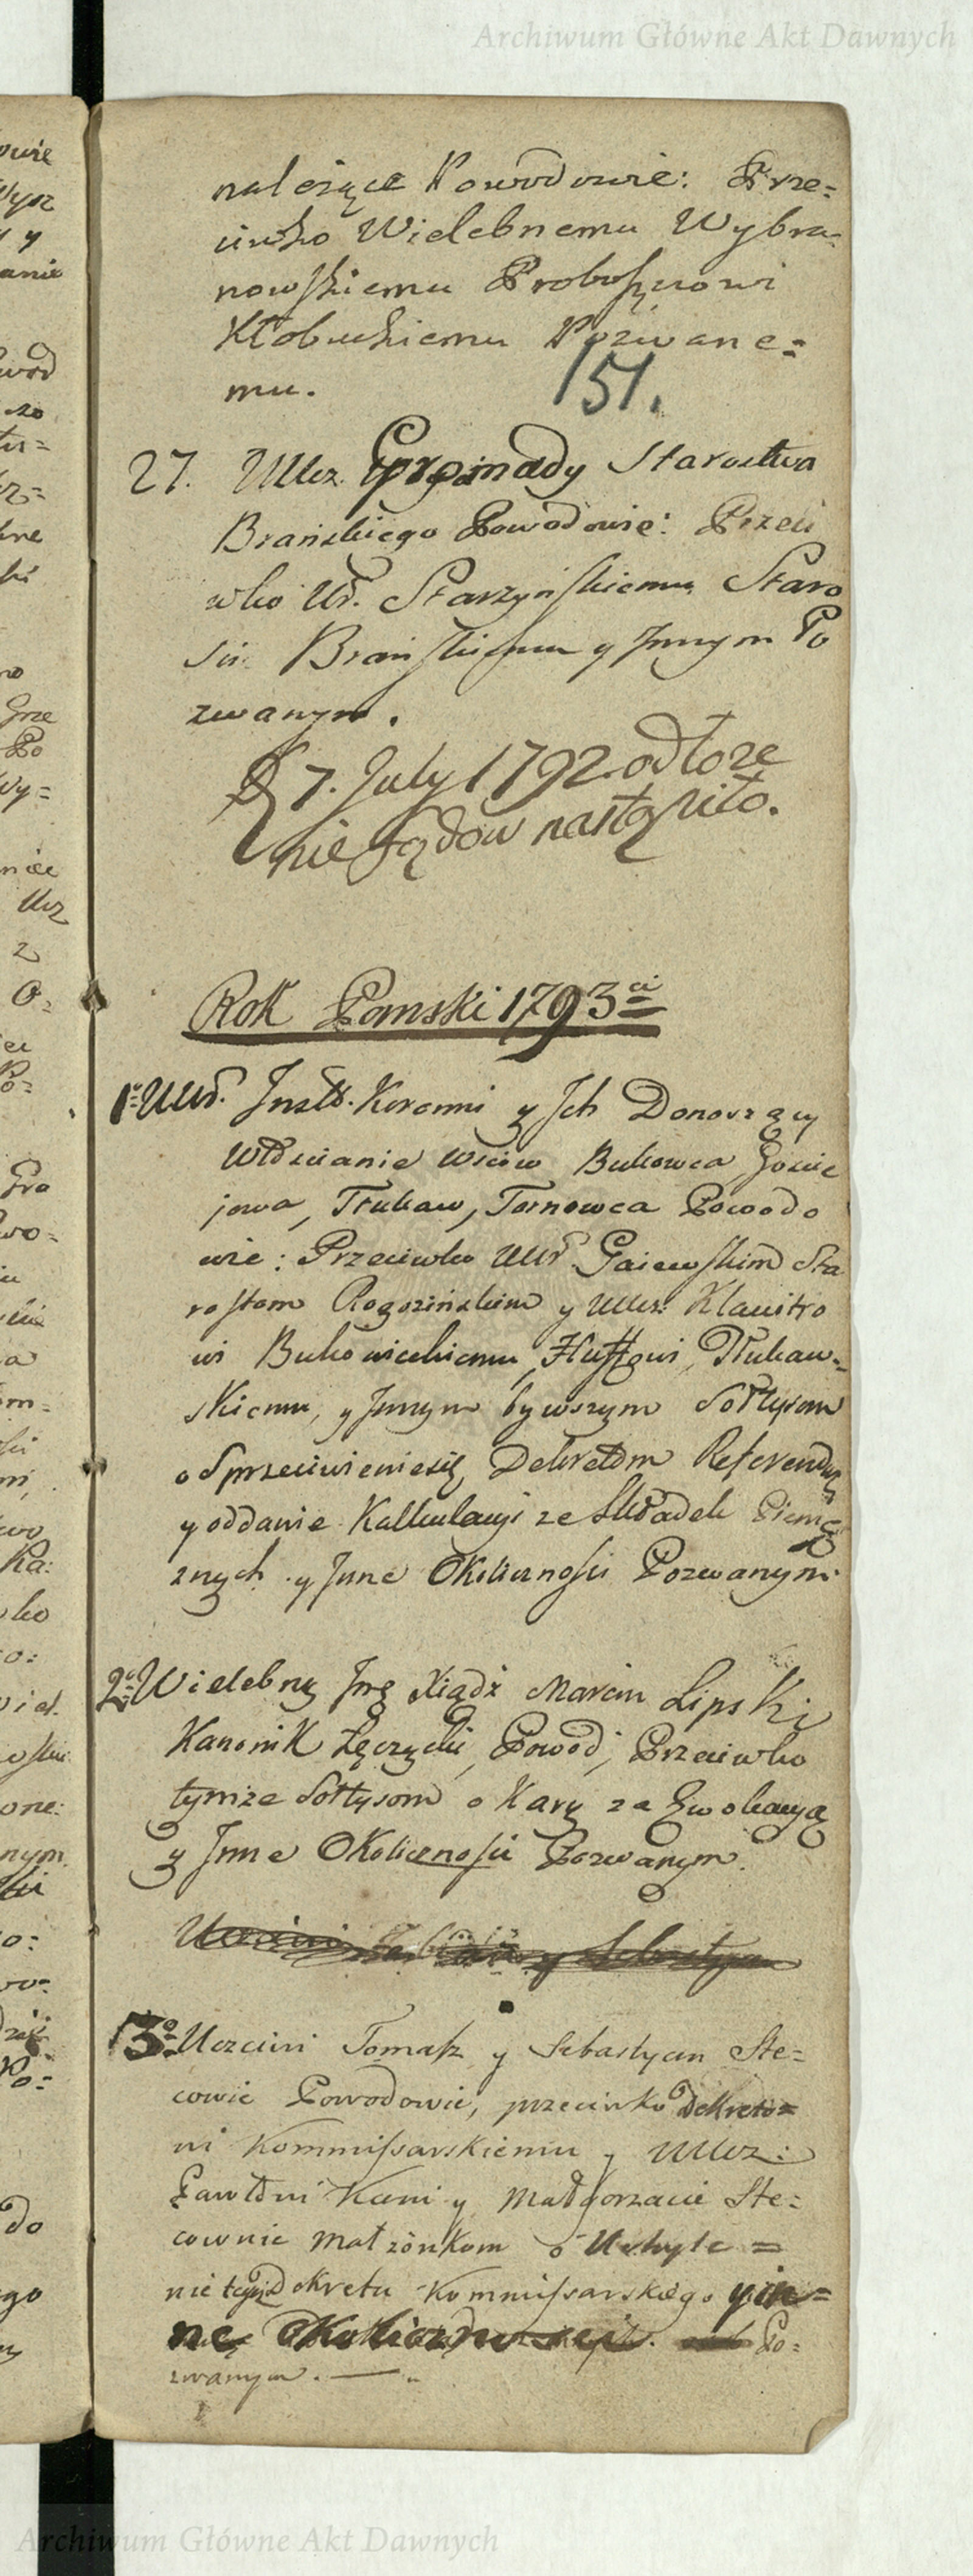 Archiwum Główne Akt Dawnych
należące Powodowie: Prze=
ciwko Wielebnemu Wybra=
nowskiemu Proboszczowi
Kłobuckiemu Pozwane=
mu.
151.
27. Ucz. Gromady Starostwa
Brańskiego Powodowie: Przeci
wko Ur. Starzyńskiemu Staro
ście Brańskiemu y Innym Po
zwanym.
D 7. July 1792. odłoże
nie sądow nastąpiło.
Rok Panski 1793ci
1o UUr. Inst. Koronni y Ich Donoszący
Włościanie wsiow Bukowca
jowa, Tłukaw, Tarnowca Powodo
wie: Przeciwko UUr. Gaiewskim Sta
rostom Rogozińskim y UUcz: Klawitro
wi Bukowieckiemu, Tłukaw=
skiemu, y Innym bywszym Sołtysom
o Sprzeciwieniesię Dekretom Referend
y oddanie Kalkulacyi ze Składek Pienię
znych y Jnne Okoliczności Pozwanym.
2o Wielebny Jmę Xiądz Marcin Lipski
Kanonik Łęczycki, Powod, Przeciwko
tymze Sołtysom o Kary za Ewokacyą
y Jnne Okoliczności Pozwanym.
y Sebastyan
3o Uczciwi Tomasz y Sebastyan Ste=
cowie Powodowie, przeciwko Dekreto=
wi Kommissarskiemu y UUcz:
Pawłowi Kani y Małgorzacie Ste=
cownie małżonkom o Uchyle=
nie tegoż Dekretu Kommissarskiego y in=
ne Okoliczności. Po=
zwanym.
Archiwum Główne Akt Dawnych